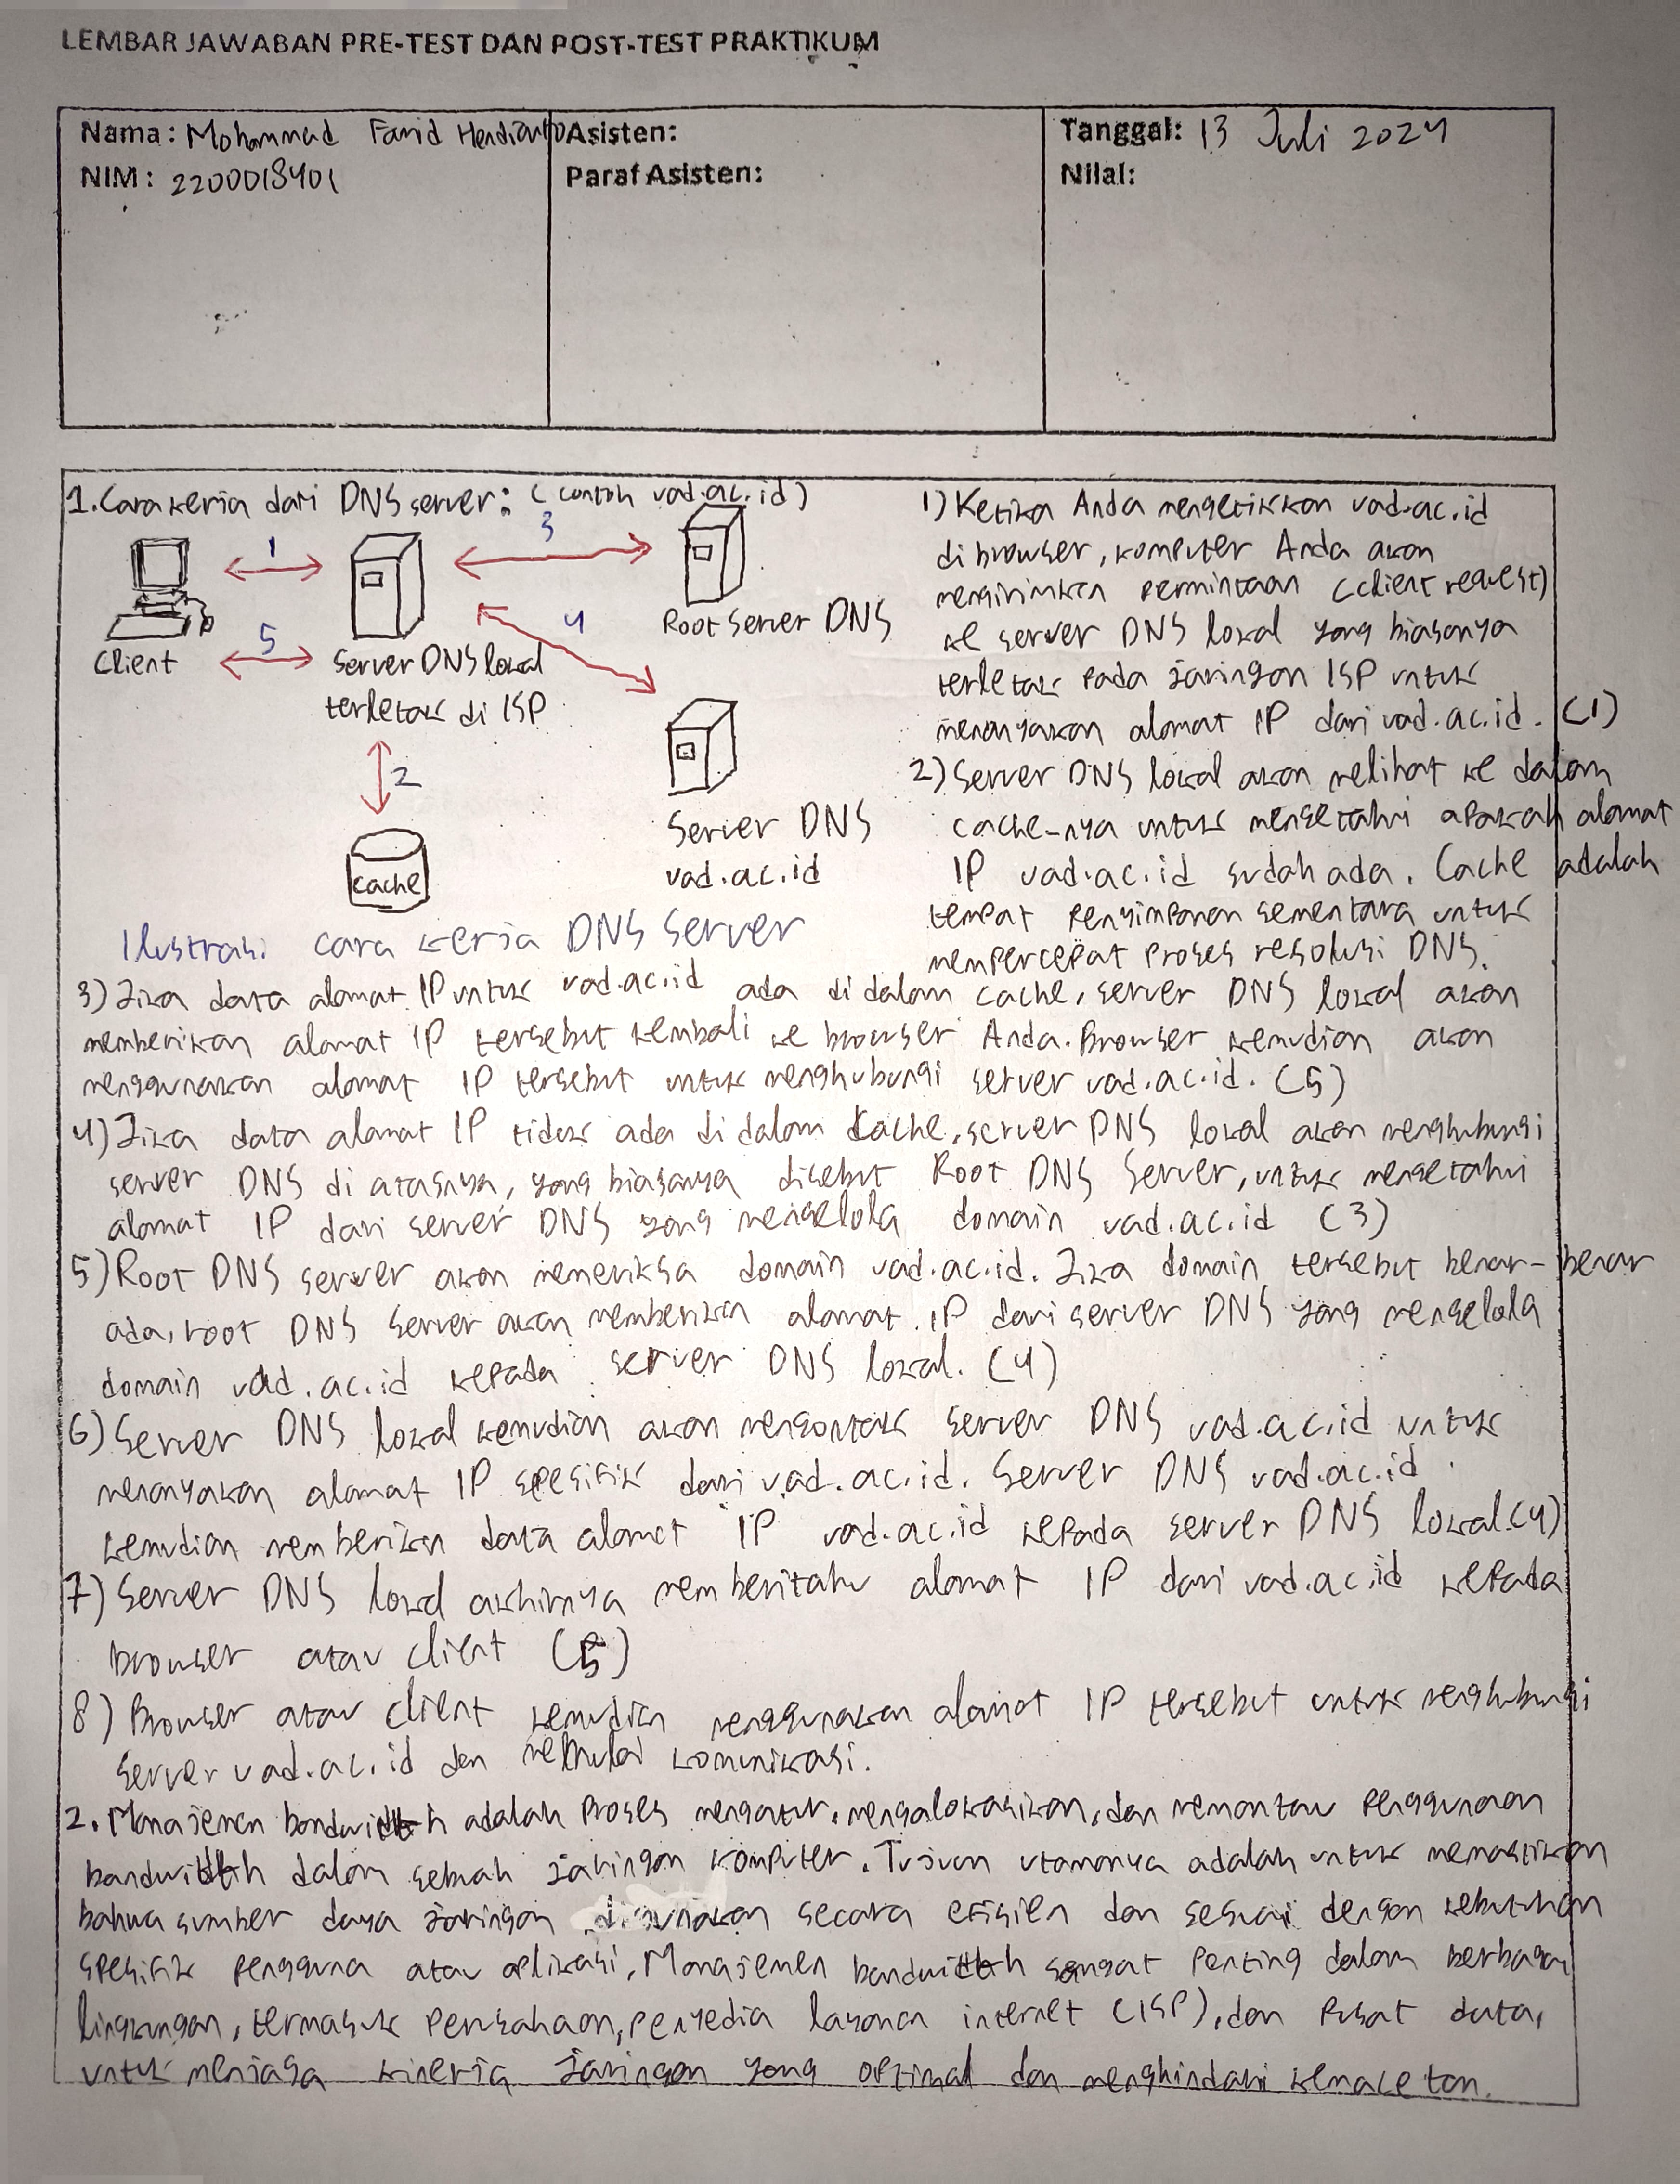 LEMBAR JAWABAN PRE-TEST DAN POST-TEST PRAKTIKUM
Nama: Mohammad Farid Hendianto
NIM: 2200018401
Asisten:
Paraf Asisten:
Tanggal: 13 Juli 2024
Nilai:
1. Cara kerja dari DNS server: (contoh uad.ac.id)
1
3
4
5
2
Client
Server DNS lokal
terletak di ISP
Root Server DNS
cache
Server DNS
uad.ac.id
Ilustrasi cara kerja DNS Server
1) Ketika Anda mengetikkan uad.ac.id
di browser, komputer Anda akan
mengirimkan permintaan (client request)
ke server DNS lokal yang biasanya
terletak pada jaringan ISP untuk
menanyakan alamat IP dari uad.ac.id. (1)
2) Server DNS lokal akan melihat ke dalam
cache-nya untuk mengetahui apakah alamat
IP uad.ac.id sudah ada. Cache adalah
tempat penyimpanan sementara untuk
mempercepat proses resolusi DNS.
3) Jika data alamat IP untuk uad.ac.id ada di dalam cache, server DNS lokal akan
memberikan alamat IP tersebut kembali ke browser Anda. Browser kemudian akan
menggunakan alamat IP tersebut untuk menghubungi server uad.ac.id. (5)
4) Jika data alamat IP tidak ada di dalam cache, server DNS lokal akan menghubungi
server DNS di atasnya, yang biasanya disebut Root DNS Server, untuk mengetahui
alamat IP dari server DNS yang mengelola domain uad.ac.id (3)
5) Root DNS server akan memeriksa domain uad.ac.id. Jika domain tersebut benar-benar
ada, root DNS Server akan memberikan alamat IP dari server DNS yang mengelola
domain uad.ac.id kepada server DNS lokal. (4)
6) Server DNS lokal kemudian akan mengontak server DNS uad.ac.id untuk
menanyakan alamat IP spesifik dari uad.ac.id. Server DNS uad.ac.id
kemudian memberikan data alamat IP uad.ac.id kepada server DNS lokal. (4)
7) Server DNS lokal akhirnya memberitahu alamat IP dari uad.ac.id kepada
browser atau client (5)
8) Browser atau client kemudian menggunakan alamat IP tersebut untuk menghubungi
server uad.ac.id dan memulai komunikasi.
2. Manajemen bandwidth adalah proses mengatur, mengalokasikan, dan memantau penggunaan
bandwidth dalam sebuah jaringan komputer. Tujuan utamanya adalah untuk memastikan
bahwa sumber daya jaringan digunakan secara efisien dan sesuai dengan kebutuhan
spesifik pengguna atau aplikasi. Manajemen bandwidth sangat penting dalam berbagai
lingkungan, termasuk perusahaan, penyedia layanan internet (ISP), dan pusat data,
untuk menjaga kinerja jaringan yang optimal dan menghindari kemacetan.